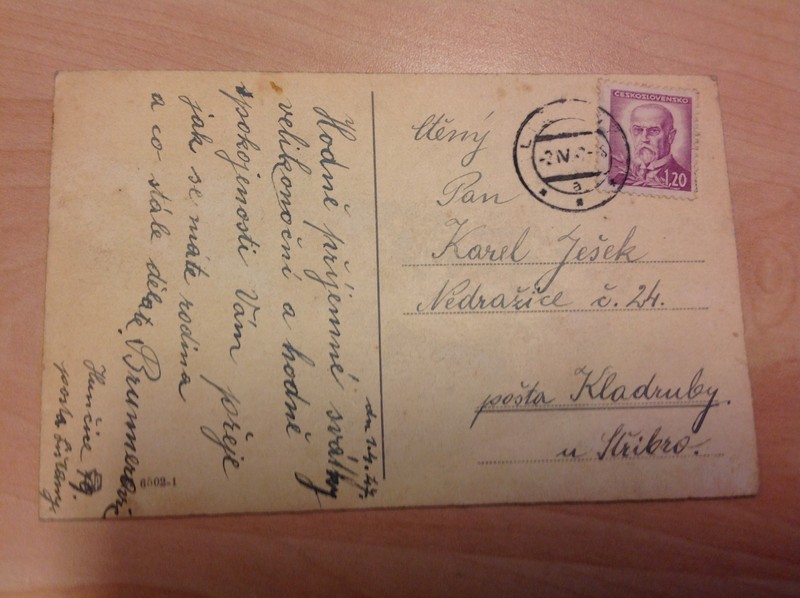 Hodně příjemné svátky
velikonoční a hodně
spokojenosti Vám přeje
jak se máte rodina
a co stále dělate. Brunnerovi
dn 1.4.47.
Hunčice
pošta
6502-1
Ctěný
Pan
Karel Ješek
Nedražice č. 24.
pošta Kladruby.
u Stříbro.
-2.IV.4
a
ČESKOSLOVENSKO
1,20